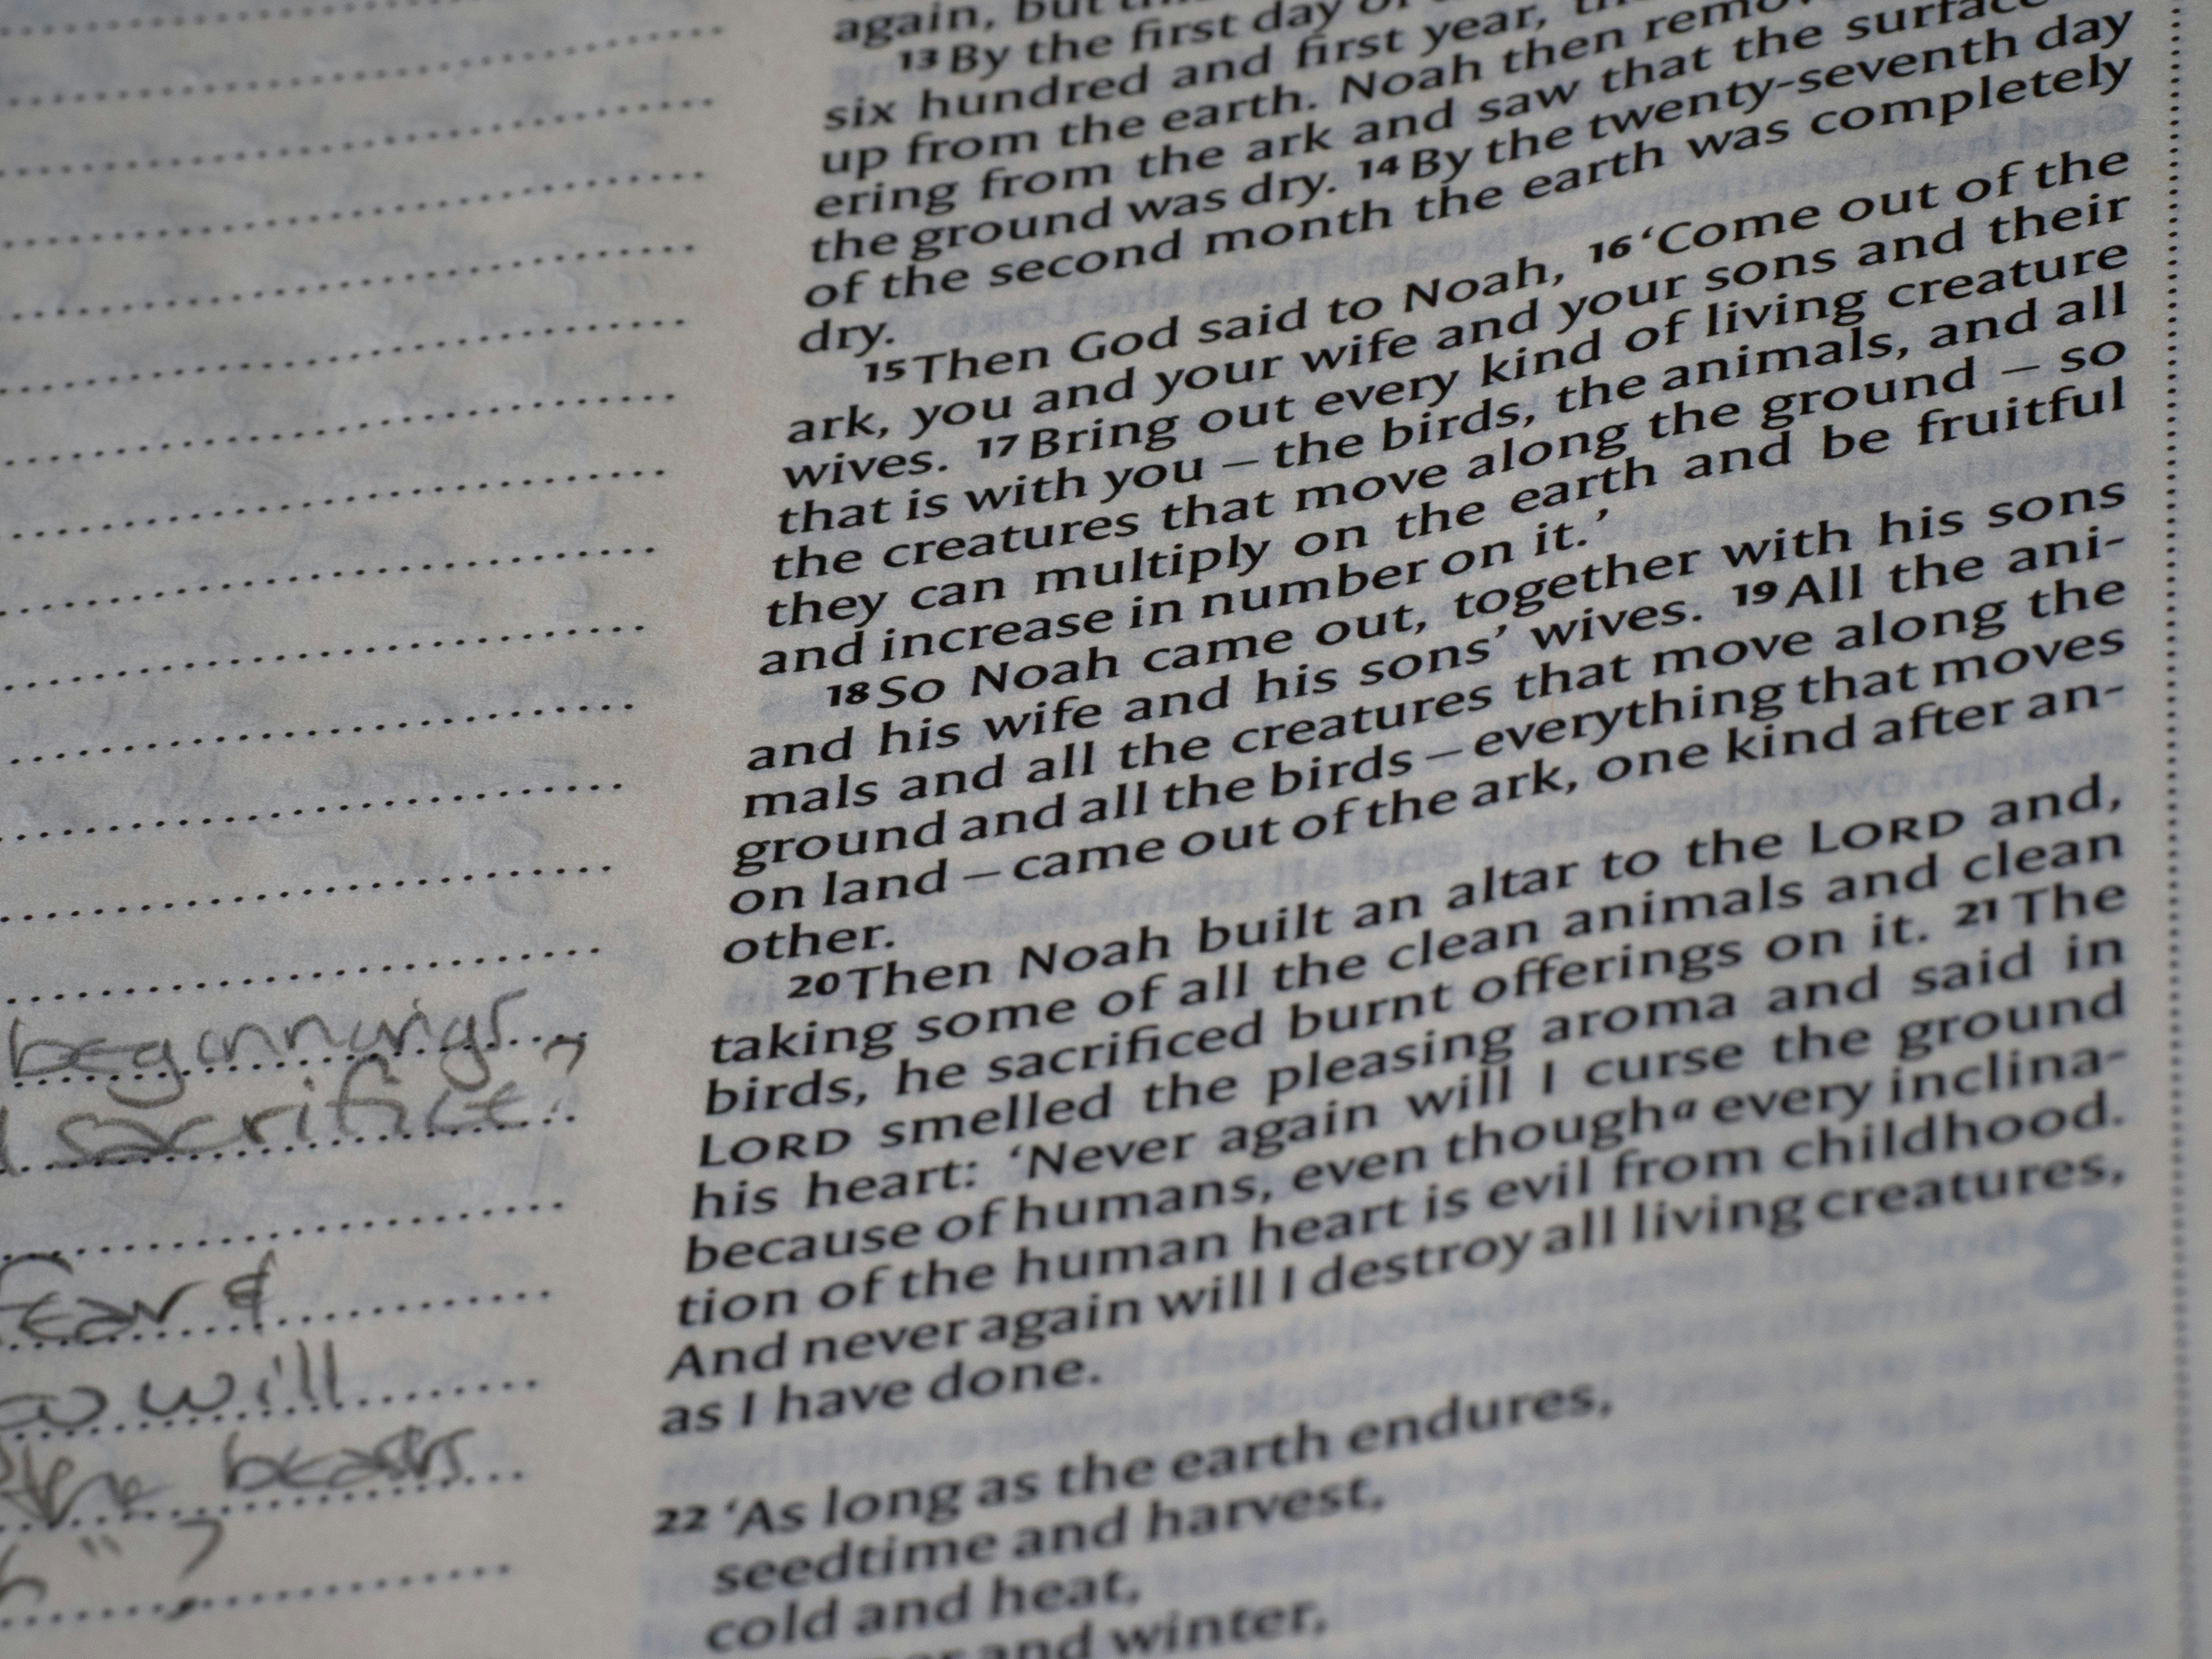 again, but
13 By the first day of
six hundred and first year,
up from the earth. Noah then remov
ering from the ark and saw that the surface
the ground was dry. 14 By the twenty-seventh day
of the second month the earth was completely
dry.
15 Then God said to Noah, 16 ‘Come out of the
ark, you and your wife and your sons and their
wives. 17 Bring out every kind of living creature
that is with you – the birds, the animals, and all
the creatures that move along the ground – so
they can multiply on the earth and be fruitful
and increase in number on it.’
18 So Noah came out, together with his sons
and his wife and his sons’ wives. 19 All the ani-
mals and all the creatures that move along the
ground and all the birds – everything that moves
on land – came out of the ark, one kind after an-
other.
20 Then Noah built an altar to the LORD and,
taking some of all the clean animals and clean
birds, he sacrificed burnt offerings on it. 21 The
LORD smelled the pleasing aroma and said in
his heart: ‘Never again will I curse the ground
because of humans, even though a every inclina-
tion of the human heart is evil from childhood.
And never again will I destroy all living creatures,
as I have done.
22 ‘As long as the earth endures,
seedtime and harvest,
cold and heat,
and winter,
beginnings
sacrifice,
fear &
will
the beasts